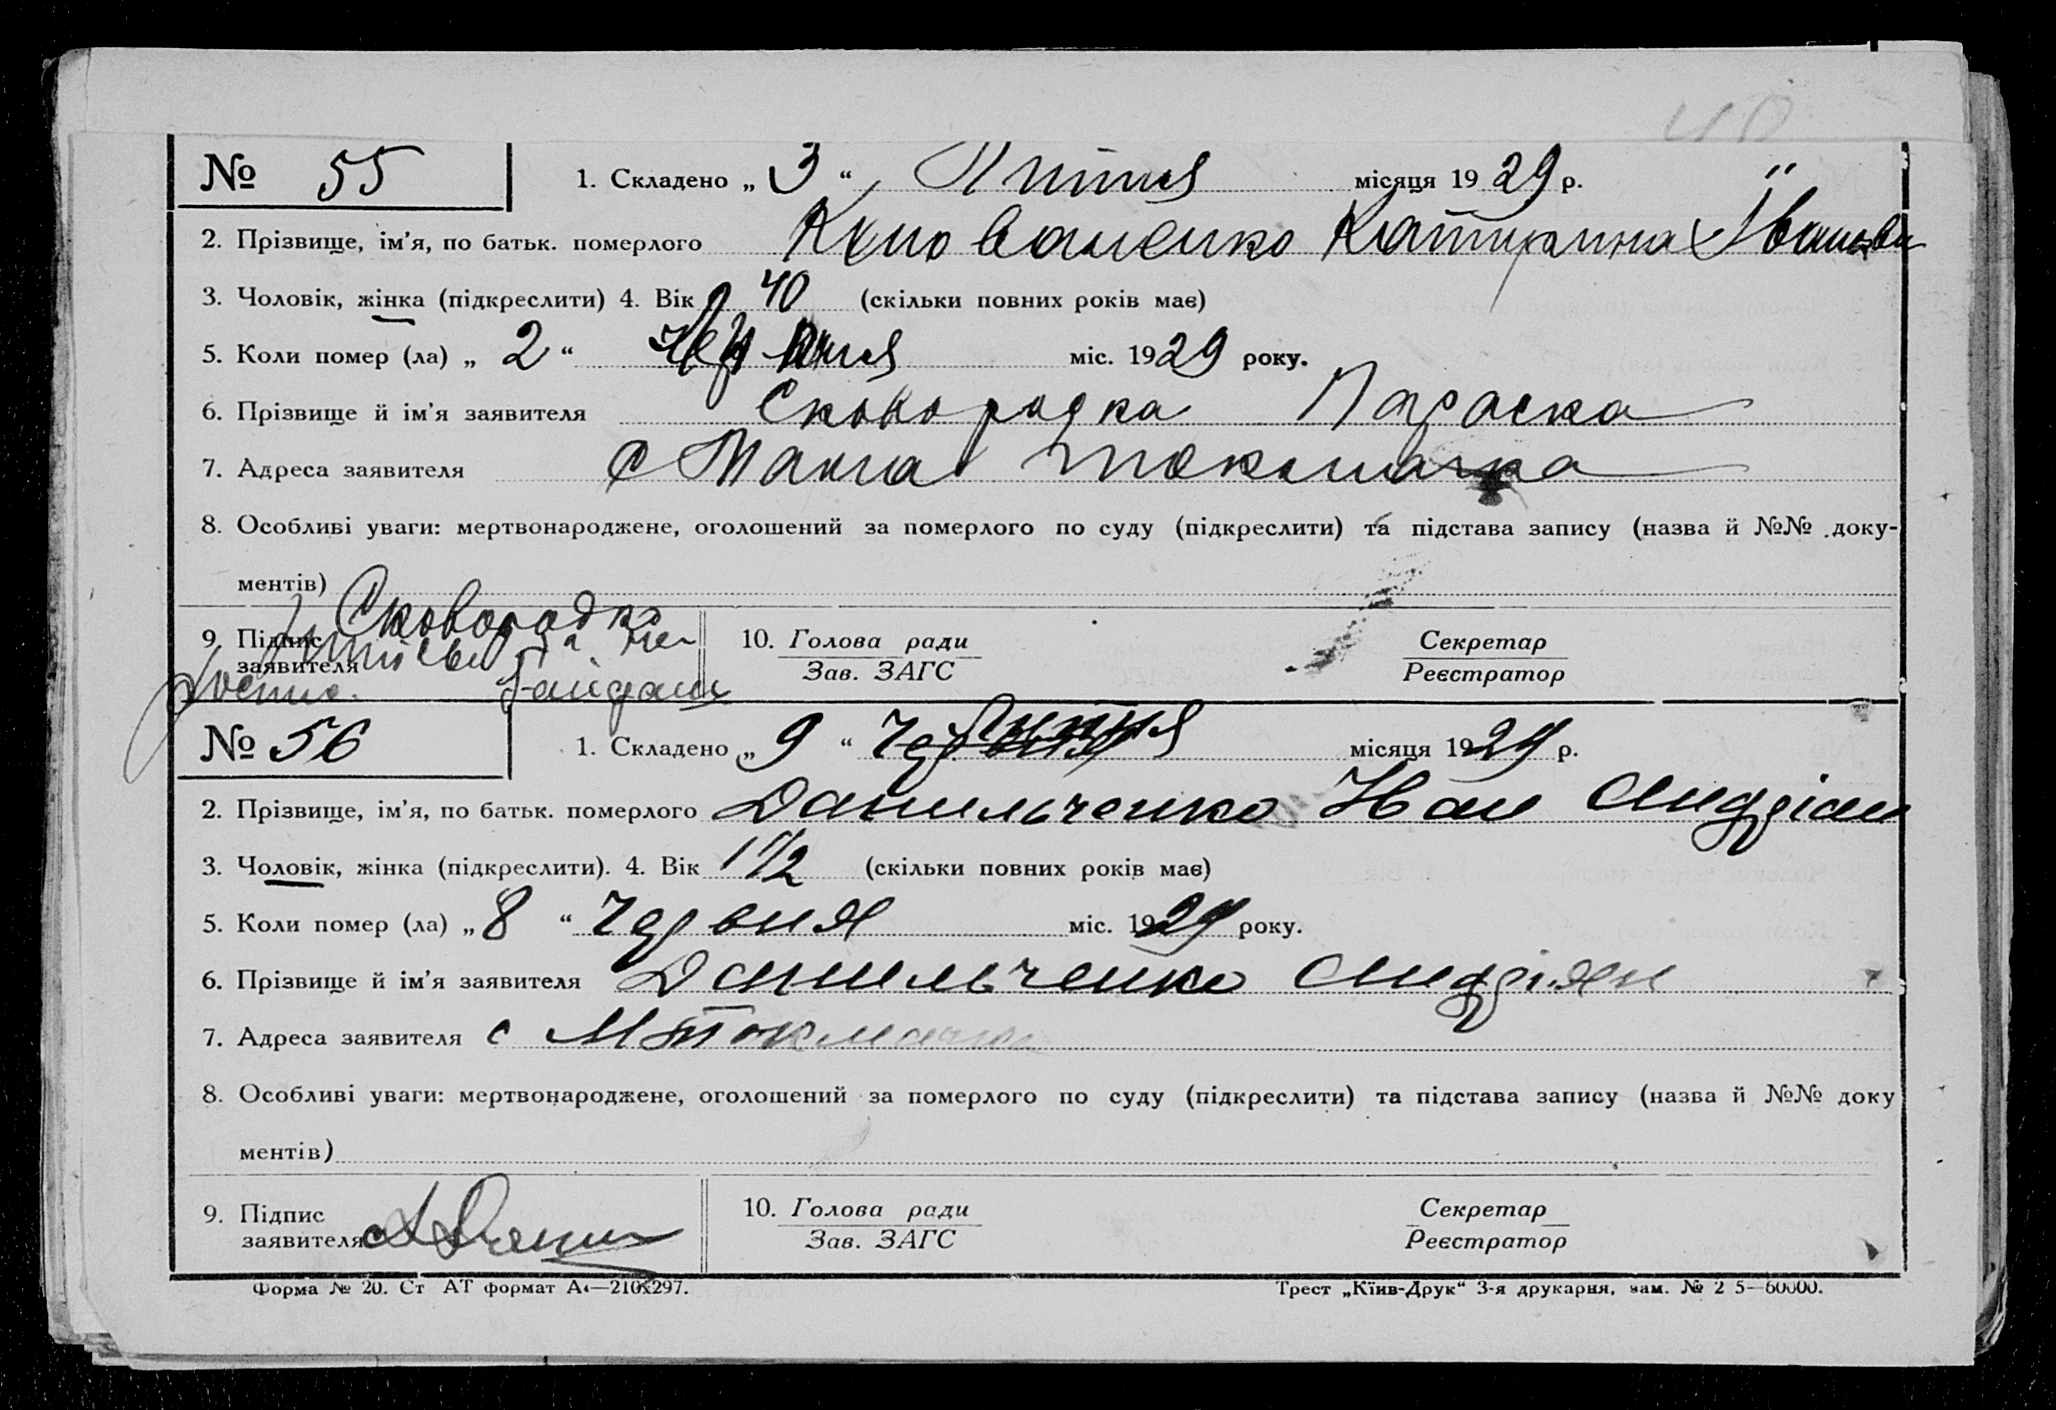 40
№ 55 1. Складено „ 3 “ Липня місяця 1929 р.
2. Прізвище, ім’я, по батьк. померлого Катирина Іванівн
3. Чоловік, жінка (підкреслити) 4. Вік 40 (скільки повних років має)
5. Коли помер (ла) „ 2 “ міс. 1929 року.
6. Прізвище й ім’я заявителя Сковородка Параска
7. Адреса заявителя с Мала Токмачка
8. Особливі уваги: мертвонароджене, оголошений за померлого по суду (підкреслити) та підстава запису (назва й №№ доку-
ментів)
9. Підпис заявителя Сковородка
10. Голова ради
Зав. ЗАГС
Секретар
Реєстратор
№ 56 1. Складено „ 9 “ Липня місяця 1929 р.
2. Прізвище, ім’я, по батьк. померлого Данильченко Иван Андріан
3. Чоловік, жінка (підкреслити). 4. Вік 1 1/2 (скільки повних років має)
5. Коли помер (ла) „ 8 “ Червня міс. 1929 року.
6. Прізвище й ім’я заявителя Данильченко Андріян
7. Адреса заявителя с М Токмачка
8. Особливі уваги: мертвонароджене, оголошений за померлого по суду (підкреслити) та підстава запису (назва й №№ доку
ментів)
9. Підпис
заявителя
10. Голова ради
Зав. ЗАГС
Секретар
Реєстратор
Форма № 20. Ст АТ формат А4—210x297. Трест „Київ-Друк“ 3-я друкарня, зам. № 2 5—60000.